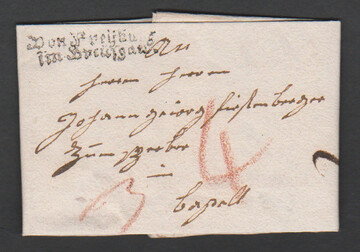 Von Freiburg
im Breisgau
An
Herrn Herrn
Johann Georg
Zum
in
Basell
3
4